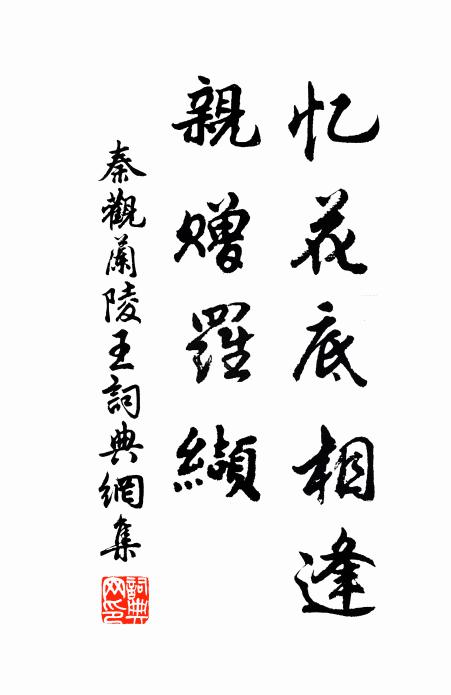 忆花底相逢
親贈羅纈
秦觀蘭陵王詞典網集
詞典网印